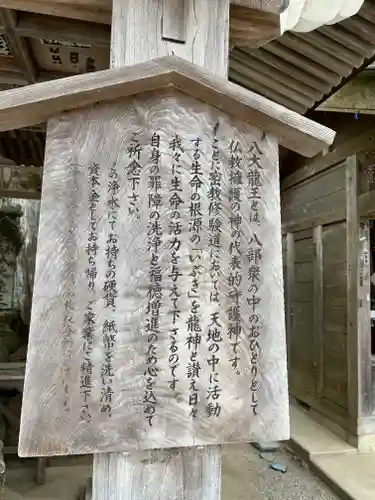 八大龍王とは、八部衆の中のおひとりとして
仏教擁護の神の代表的守護神です。
ことに密教修験道においては、天地の中に活動
する生命の根源の「いぶき」を龍神と讃え日々
我々に生命の活力を与えて下さるのです。
自身の罪障の洗浄と福徳増進のため心を込めて
ご祈念下さい。
この浄水にてお持ちの硬貨、紙幣を洗い清め、
資本金としてお持ち帰り、ご家業にご精進下さい。